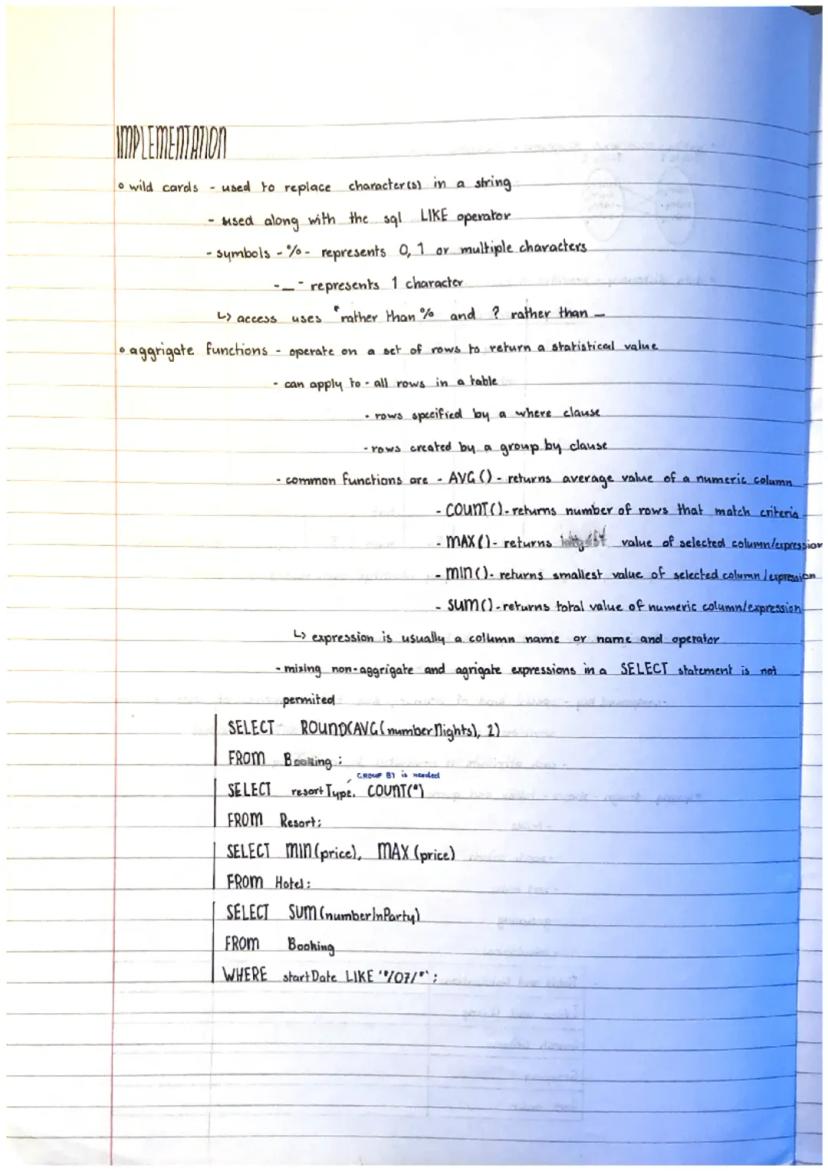 IMPLEMENTATION
° wild cards - used to replace character(s) in a string
- used along with the sql LIKE operator
- symbols - % - represents 0, 1 or multiple characters
- _ - represents 1 character
↳ access uses * rather than % and ? rather than _
° aggrigate functions - operate on a set of rows to return a statistical value
- can apply to - all rows in a table
- rows specified by a where clause
- rows created by a group by clause
- common functions are - AVG () - returns average value of a numeric column
- COUNT() - returns number of rows that match criteria
- MAX() - returns value of selected column/expression
- MIN() - returns smallest value of selected column/expression
- SUM() - returns total value of numeric column/expression
↳ expression is usually a column name or name and operator
- mixing non-aggregate and agrigate expressions in a SELECT statement is not
permited
SELECT ROUND(AVG(numberNights), 2)
FROM Booking;
GROUP BY is needed
SELECT resortType, COUNT(*)
FROM Resort;
SELECT MIN(price), MAX(price)
FROM Hotel;
SELECT SUM(numberInParty)
FROM Booking
WHERE startDate LIKE "*/07/*";